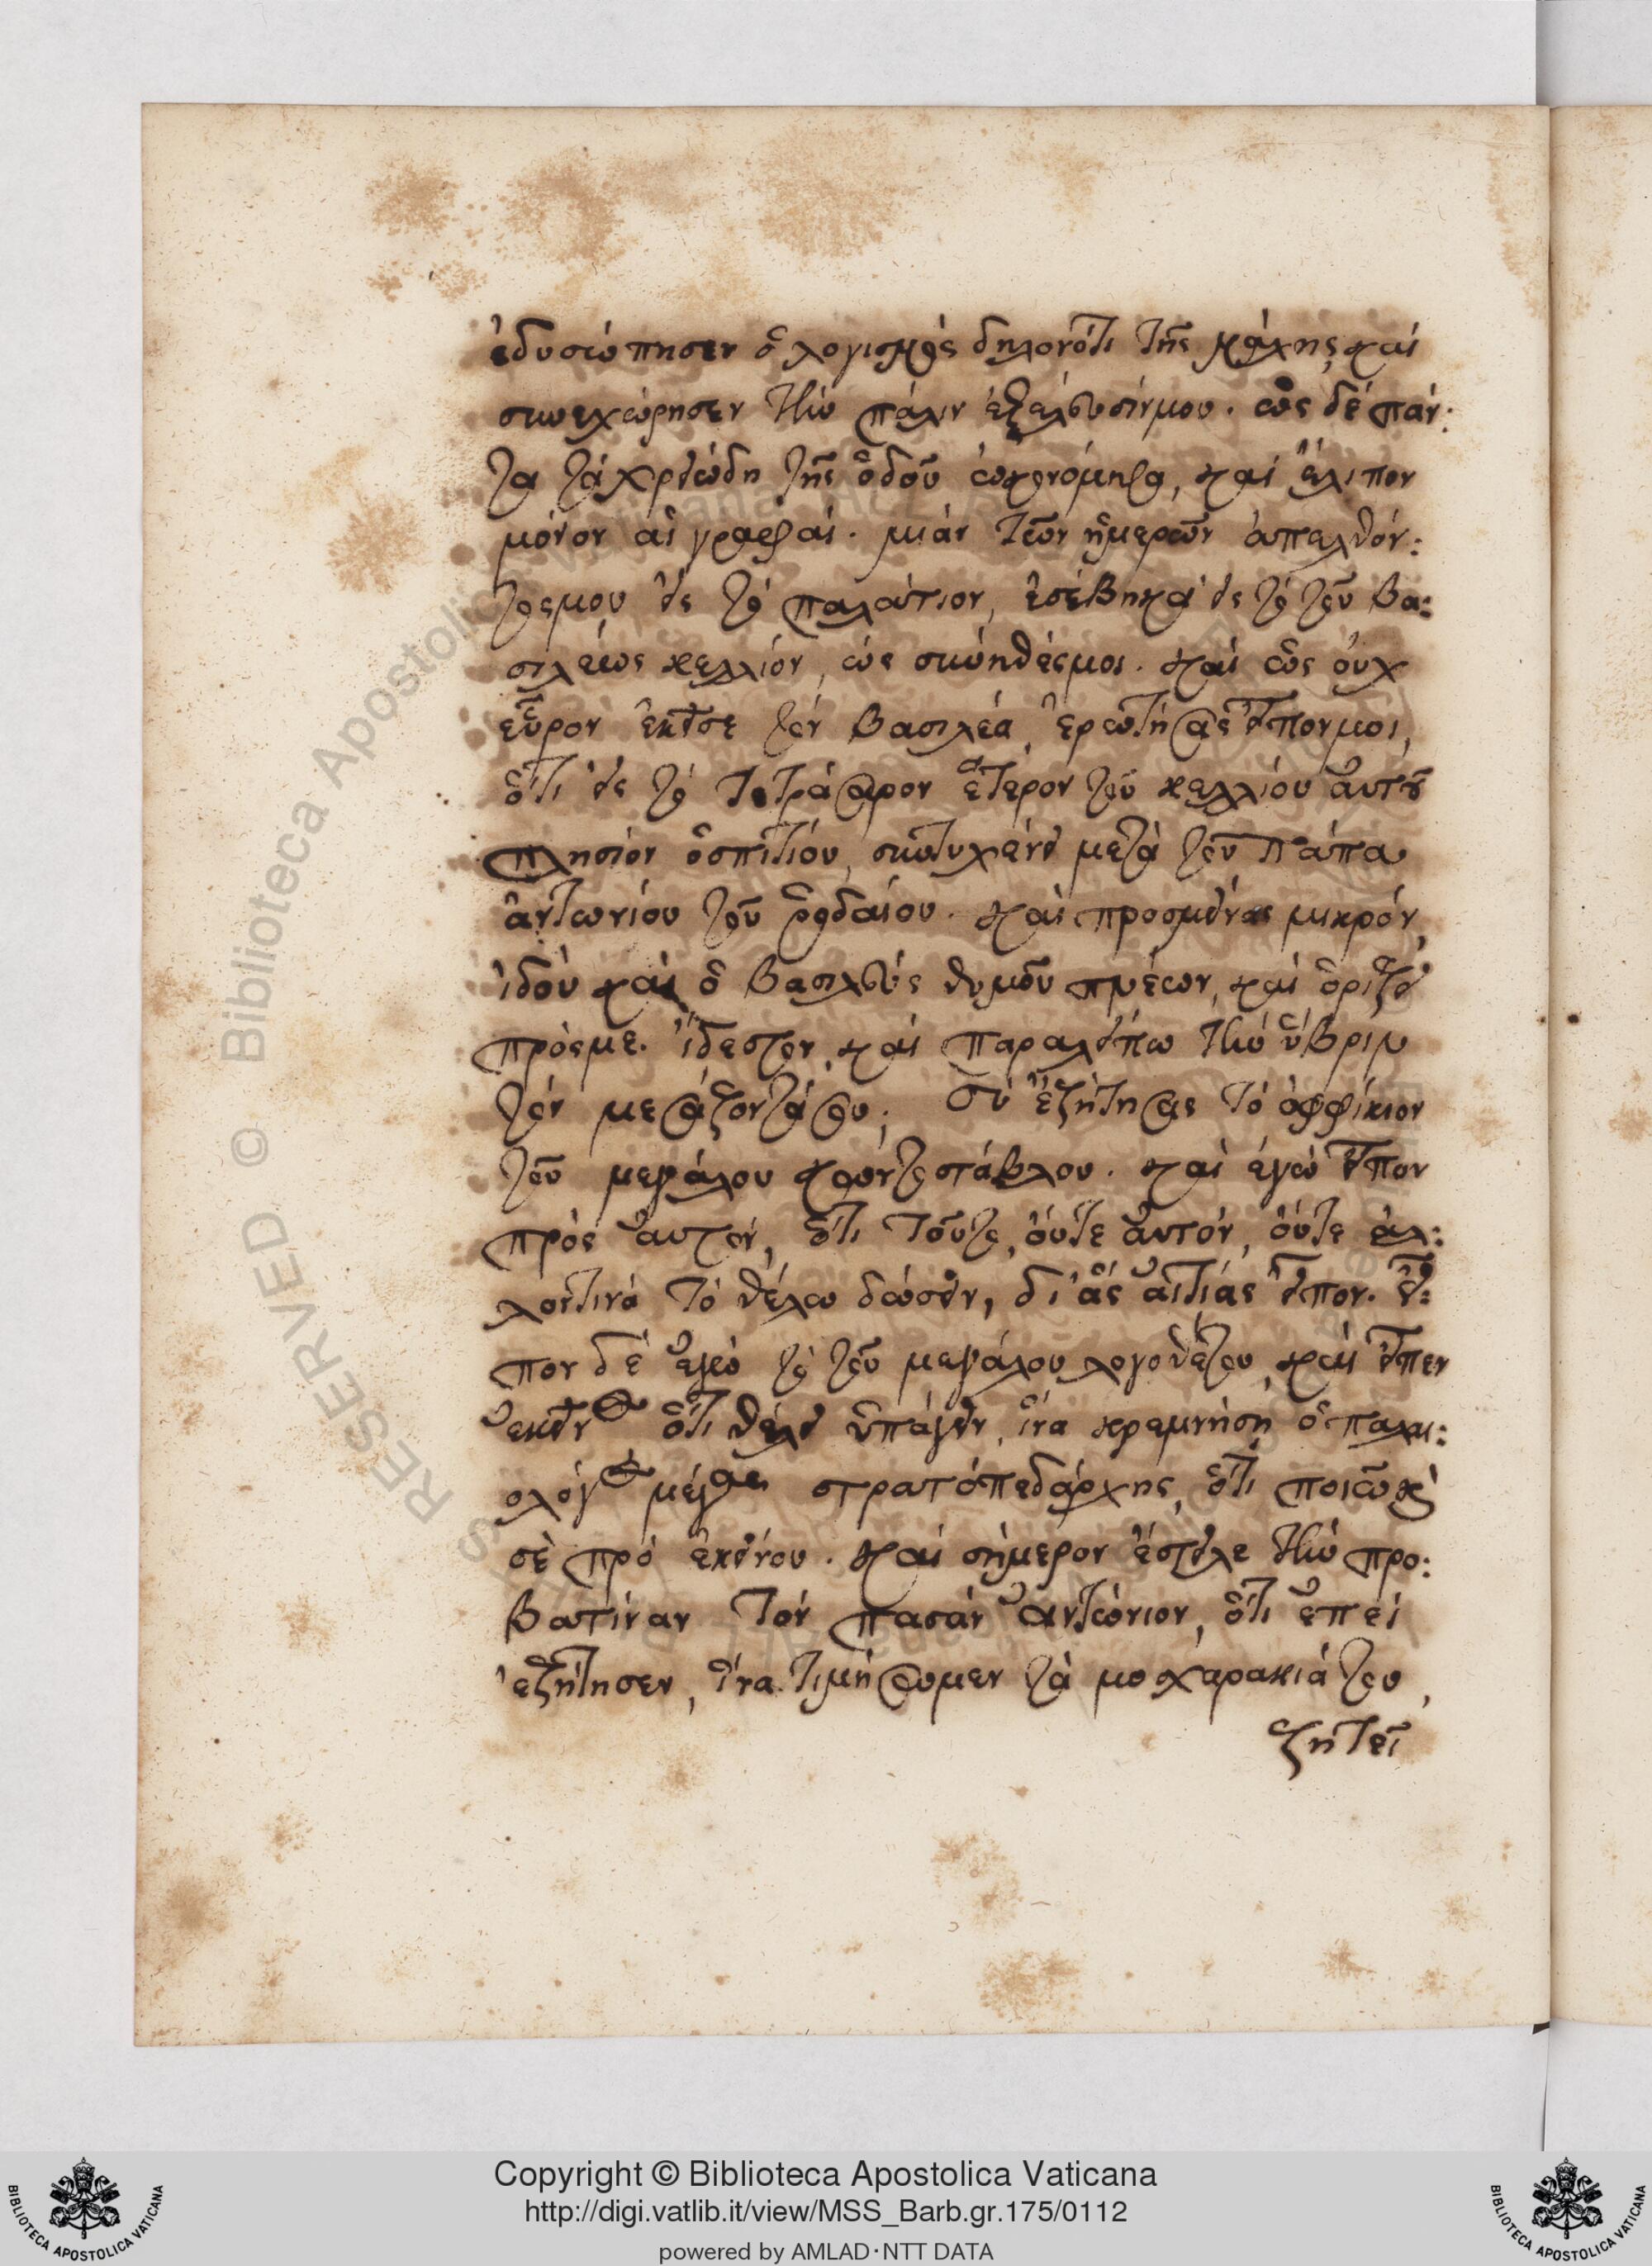 ἐδυσώπησεν ὁ λογισμὸς δηλονότι τῆς μάχης καὶ
συνεχώρησεν τὴν πάλιν ἐξέλευσίν μου. ὡς δὲ πάν:
τα τὰ χρειώδη τῆς ὁδοῦ ᾠκονόμησα, καὶ ἔλιπον
μόνον αἱ γραφαί. μιὰν τῶν ἡμερῶν ἀπελθόν:
τος μου εἰς τὸ παλάτιον, ἐσέβηκα εἰς τὸ τοῦ βα:
σιλέως κελλίον, ὡς συνηθές μοι. καὶ ὡς οὐχ
εὗρον ἐκεῖσε τὸν βασιλέα, ἐρωτήσας εἶπον μοι,
ὅτι εἰς τὸ τετράσαρον ἕτερον τοῦ κελλίου αὐτοῦ
πλησίον ὁσπιτίου, συντυχένει μετὰ τοῦ πάπα
ἀντωνίου τοῦ ῥοδαίου. καὶ προσμείνας μικρόν,
ἰδοὺ καὶ ὁ βασιλεὺς θυμοῦ πνέων, καὶ ὁρίζει
πρός με. ἴδες τον, καὶ παραλείπω τὴν ὕβριν
τὸν μεσάζοντά σου; σὺ ἐζήτησας τὸ ὀφφίκιον
τοῦ μεγάλου κοντοστάβλου. καὶ ἐγὼ εἶπον
πρὸς αὐτόν, ὅτι τοῦτο, οὔτε αὐτόν, οὔτε ἄλ:
λον τινὰ τὸ θέλω δώσειν, δι' ἃς αἰτίας εἶπον. εἶ:
πον δὲ ἐγὼ τὸ τοῦ μεγάλου λογοθέτου, καὶ εἶπεν
ἐκεῖνος ὅτι θέλει ὑπάγειν, ἵνα κρεμνήσῃ ὁ παλαι:
ολόγος μέγας στρατοπεδάρχης, ὅτι ποιῶ καὶ
σὲ πρὸ ἐκείνου. καὶ σήμερον ἔστειλε τὴν προ:
βατίναν τὸν πασὰν ἀντώνιον, ὅτι ἐπεὶ
ἐζήτησεν, ἵνα τιμήσουμεν τὰ μοσχαρακιά του,
ζητεῖ
Copyright © Biblioteca Apostolica Vaticana
http://digi.vatlib.it/view/MSS_Barb.gr.175/0112
powered by AMLAD·NTT DATA